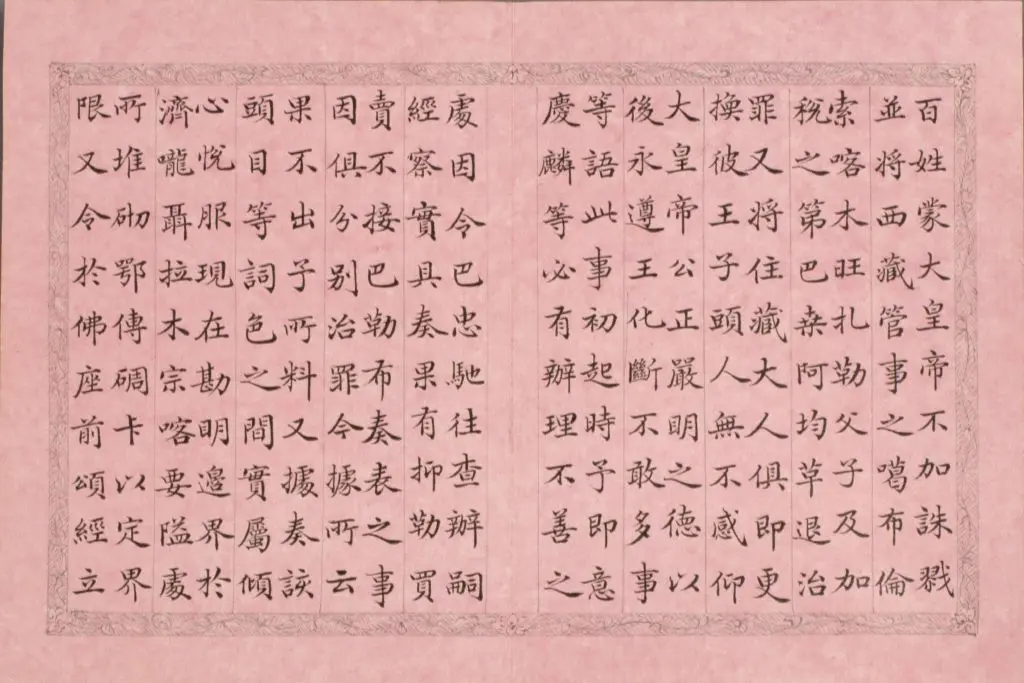 百姓蒙大皇帝不加誅戮
並將西藏管事之噶布倫
索喀木旺扎勒父子及加
稅之第巴桑阿均革退治
罪又將住藏大人俱即更
換彼王子頭人無不感仰
大皇帝公正嚴明之德以
後永遵王化斷不敢多事
等語此事初起時予即意
慶麟等必有辦理不善之
處因令巴忠馳往查辦嗣
經察實具奏果有抑勒買
賣不接巴勒布奏表之事
因俱分別治罪今據所云
果不出予所料又據奏該
頭目等詞色之間實屬傾
心悅服現在勘明邊界於
濟嚨聶拉木宗喀要隘處
所堆砌鄂博碉卡以定界
限又令於佛座前頌經立